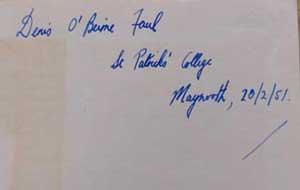 Denis O'Beirne Faul
St Patricks' College
Maynooth, 20/2/51.